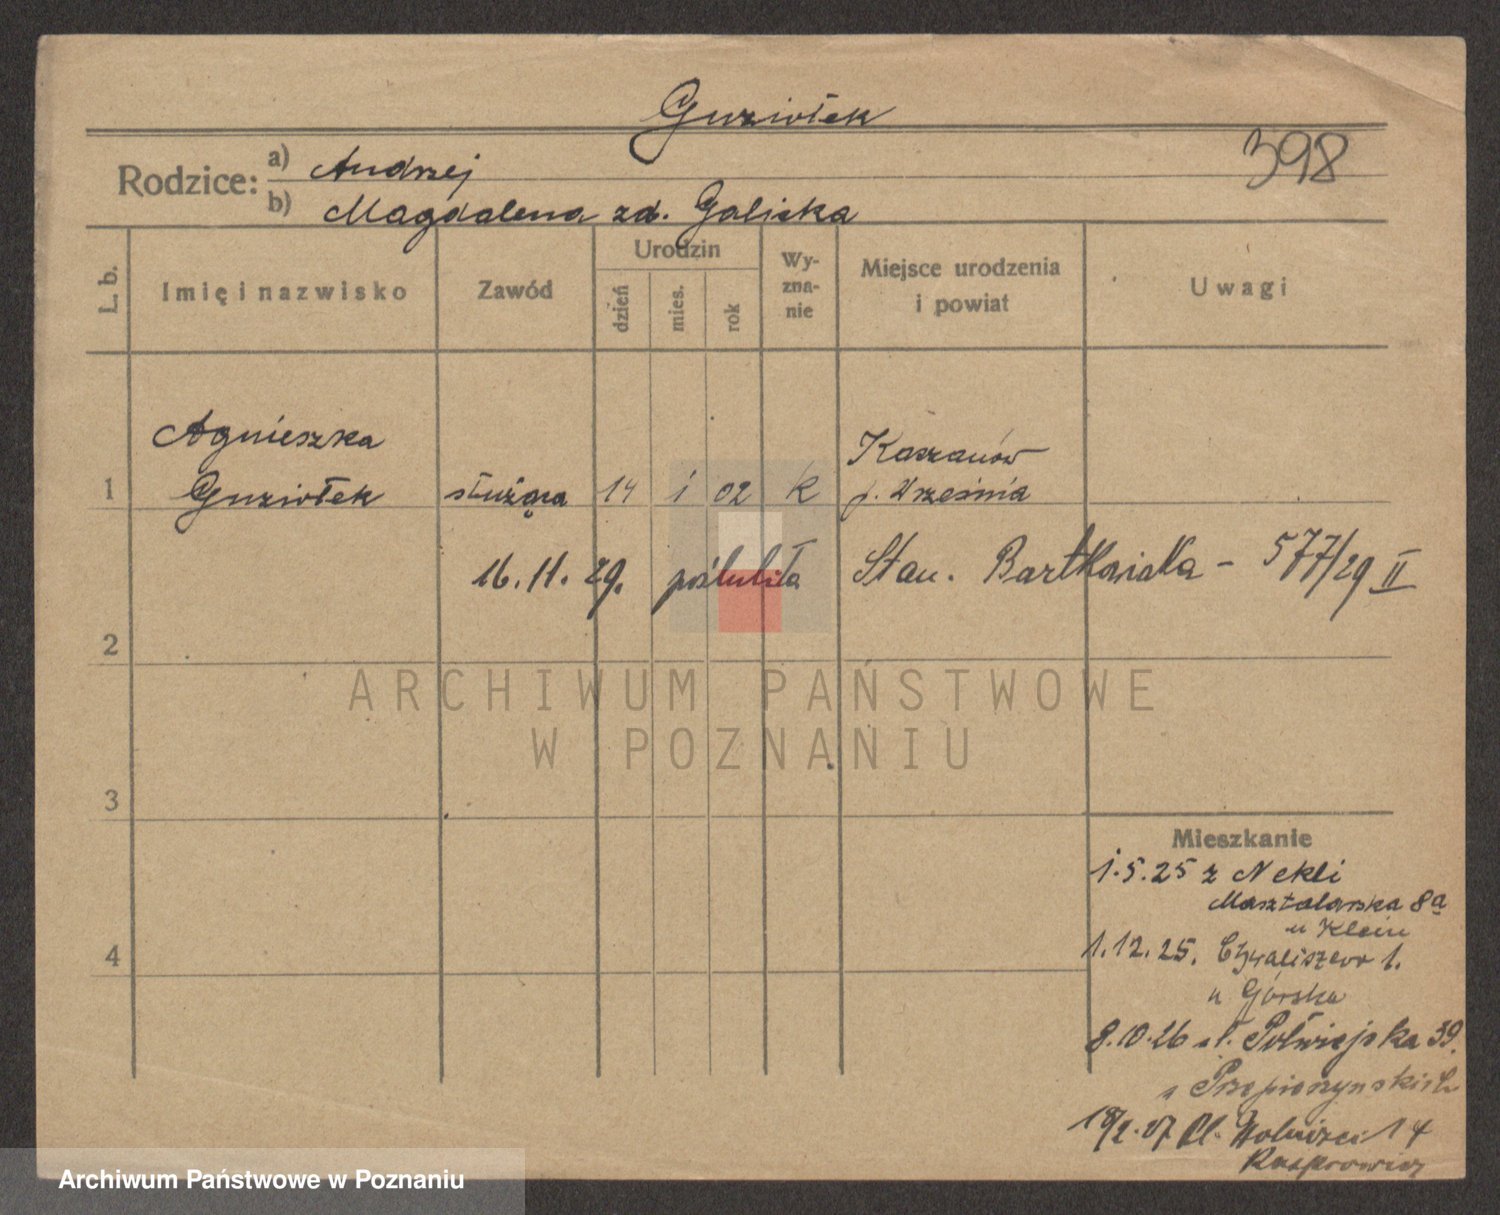 Guziołek
398
Rodzice: a) Andrzej
b) Magdalena zd. Galicka
L. b.
Imię i nazwisko
Zawód
Urodzin
dzień
mies.
rok
Wy-
zna-
nie
Miejsce urodzenia
i powiat
Uwagi
Agnieszka
Kaszanów
1 Guziołek służąca 14 i 02 k p. Września
16.11.29. poślubiła Stan. Bartkowiaka - 577/29 II
2
ARCHIWUM PAŃSTWOWE
W POZNANIU
3
Mieszkanie
1.5.25 z Nekli
Masztalarska 8a
u Klein
4
1.12.25. Chwaliszewo 1.
u Górska
8.10.26 Półwiejska 39.
18/2.07 Pl. Wolności 14
Kasprowicz
Archiwum Państwowe w Poznaniu